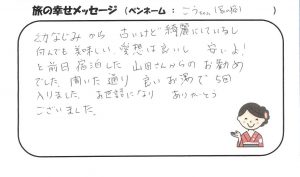 旅の幸せメッセージ (ペンネーム : こうちゃん )
幼なじみから 古いけど綺麗にしているし
何んでも美味しい、愛想は良いし 安いよ!
と前日宿泊した 山田さんからのお勧め
でした。聞いた通り 良いお湯で 5回
入りました。お世話になり ありがとう
ございました。